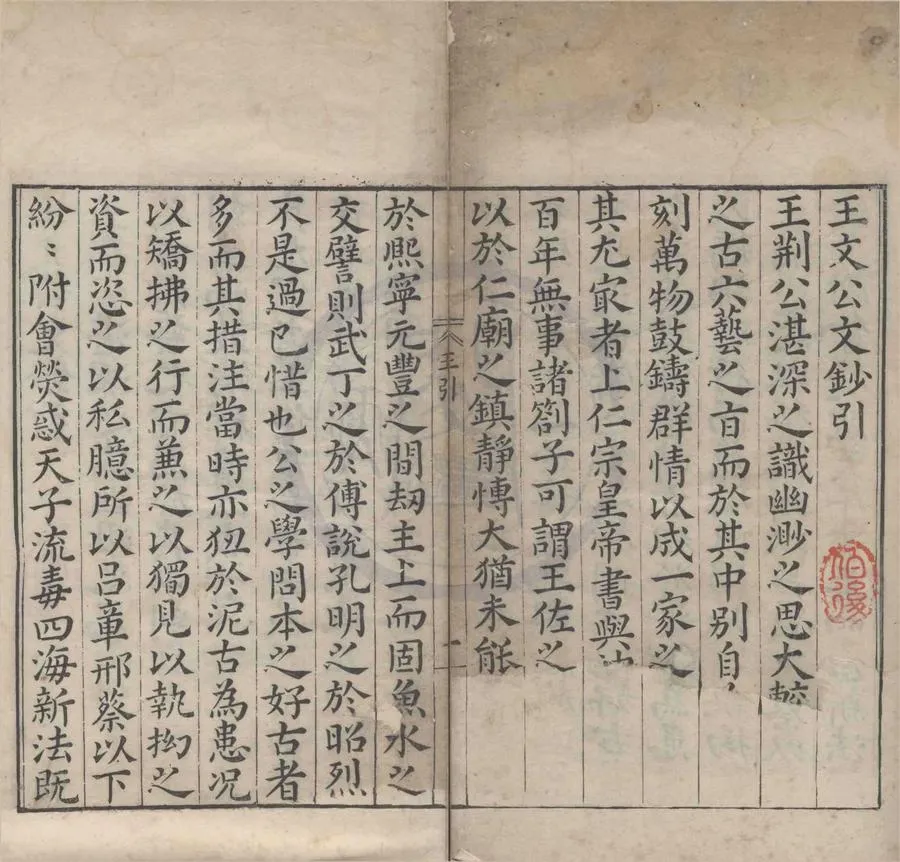 王文公文鈔引
王荊公湛深之識幽渺之思大
之古六藝之旨而於其中别自
刻萬物鼓鑄群情以成一家之
其尤㝡者上仁宗皇帝書與
百年無事諸劄子可謂王佐之
以於仁廟之鎮靜慱大猶未能
王引
一
於熙寧元豐之間刼主上而固魚水之
交譬則武丁之於傅說孔明之於昭烈
不是過已惜也公之學問本之好古者
多而其措注當時亦狃於泥古為患况
以矯拂之行而兼之以獨見以執拗之
資而恣之以私臆所以呂章邢蔡以下
紛〻附會熒惑天子流毒四海新法既